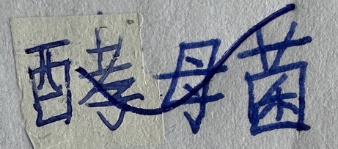 酵母菌